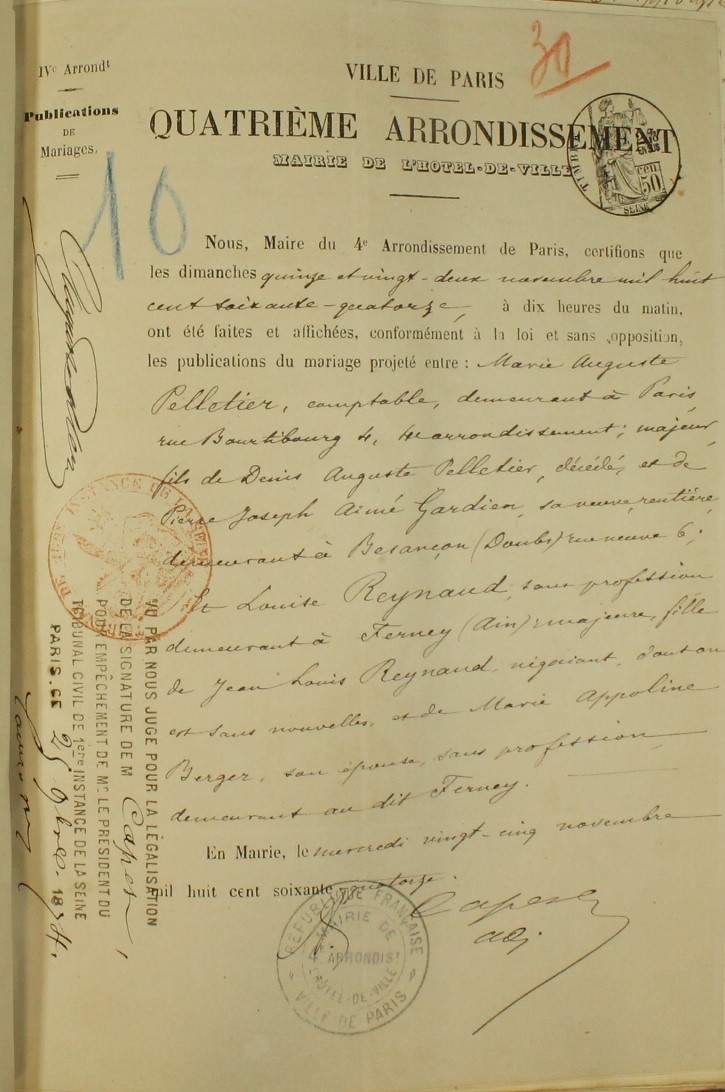 30
IVe Arrondt
Publications
DE
Mariages.
10
VILLE DE PARIS
QUATRIÈME ARRONDISSEMENT
MAIRIE DE L'HOTEL-DE-VILLE
TIMBRE
50 cen
SEINE
Nous, Maire du 4e Arrondissement de Paris, certifions que
les dimanches quinze et vingt-deux novembre mil huit
cent soixante-quatorze, à dix heures du matin,
ont été faites et affichées, conformément à la loi et sans opposition,
les publications du mariage projeté entre : Marie Auguste
Pelletier, comptable, demeurant à Paris,
rue Bourtibourg 4, 4e arrondissement; majeur,
fils de Denis Auguste Pelletier, décédé, et de
Pierre Joseph Aimé Gardien, sa veuve, rentière,
demeurant à Besançon (Doubs) rue neuve 6;
Et Louise Reynaud, sans profession
demeurant à Ferney (Ain); majeure, fille
de Jean Louis Reynaud, négociant, dont on
est sans nouvelles, et de Marie Appoline
Berger, son épouse, sans profession
demeurant au dit Ferney.
En Mairie, le mercredi vingt-cinq novembre
mil huit cent soixante quatorze.
Capen
adj
RÉPUBLIQUE FRANÇAISE
MAIRIE DE
4e ARRONDISt
L'HOTEL-DE-VILLE
VILLE DE PARIS
VU PAR NOUS JUGE POUR LA LÉGALISATION
DE LA SIGNATURE DE M Capen,
POUR EMPÊCHEMENT DE Mr LE PRÉSIDENT DU
TRIBUNAL CIVIL DE 1ère INSTANCE DE LA SEINE
PARIS, CE 25 9bre 1874.
INSTANCE DE LA SEINE